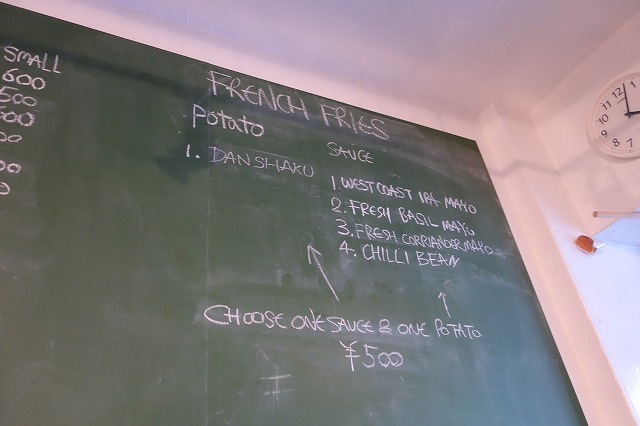 SMALL
600
500
FRENCH FRIES
Potato
1. DANSHAKU
SAUCE
1. WEST COAST IPA MAYO
2. FRESH BASIL MAYO
3. FRESH CORRIANDER MAYO
4. CHILLI BEAN
CHOOSE ONE SAUCE & ONE POTATO
¥500
10
11
12
9
8
7